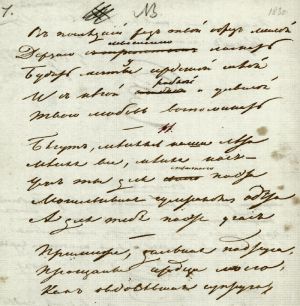 1. NB 1830
Въ последній разъ твой образъ милой
Дерзаю мысленно ласкать
Будить мечту сердечной силой
И съ нѣгой робкой и унылой
Твою любовь воспоминать
II.
Бегутъ, меняясь наши лѣта
Меняя все, меняя насъ
Ужъ ты для страстнаго поэта
Могильнымъ сумракомъ одѣта
А для тебя поэтъ угасъ
Прими же, дальная подруга,
Прощанье сердца моего,
Какъ овдовѣвшая супруга,